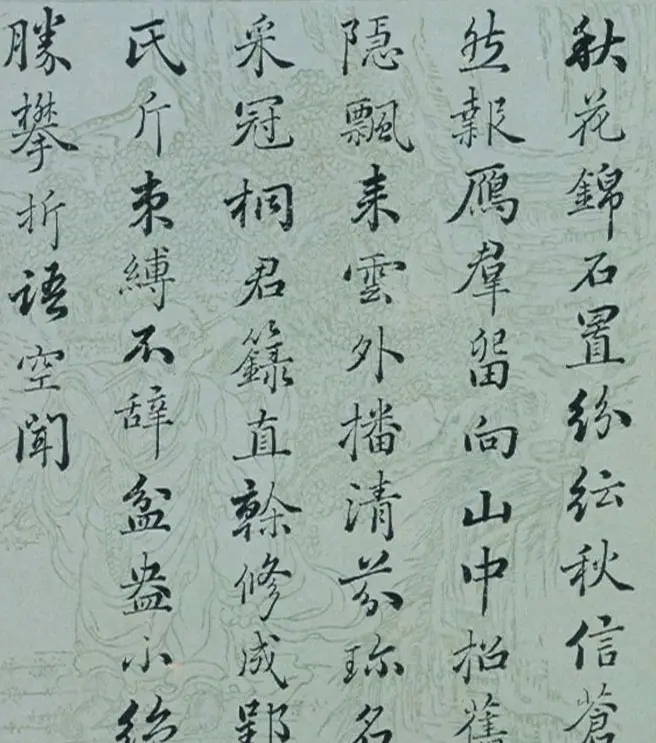 秋花錦石置紛紜秋信蒼
然報鴈羣留向山中招舊
隱飄来雲外播清芬珎名
采冠桐君籙直榦修成郢
氏斤束縛不辭盆盎小
勝攀折語空聞